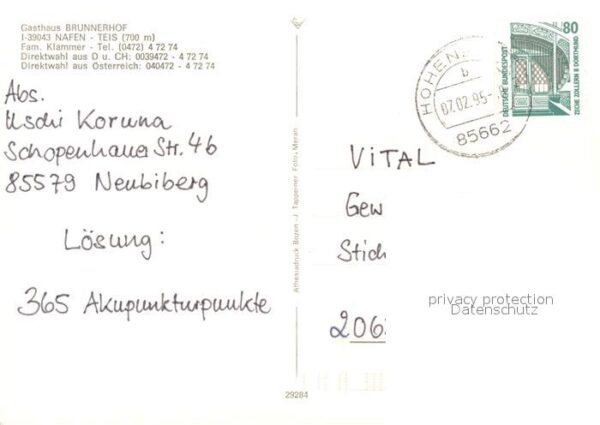 Gasthaus BRUNNERHOF
I-39043 NAFEN - TEIS (700 m)
Fam. Klammer - Tel. (0472) 4 72 74
Direktwahl aus D u. CH: 0039472 - 4 72 74
Direktwahl aus Österreich: 040472 - 4 72 74
Abs.
Uschi Koruna
Schopenhauer Str. 46
85579 Neubiberg
Lösung:
365 Akupunkturpunkte
Athesiadruck Bozen - J. Tappeiner Foto, Meran
29284
HOHEN
b
07.02.95-
85662
80
DEUTSCHE BUNDESPOST
ZECHE ZOLLERN II DORTMUND
VITAL
Gew
Stich
206
privacy protection
Datenschutz